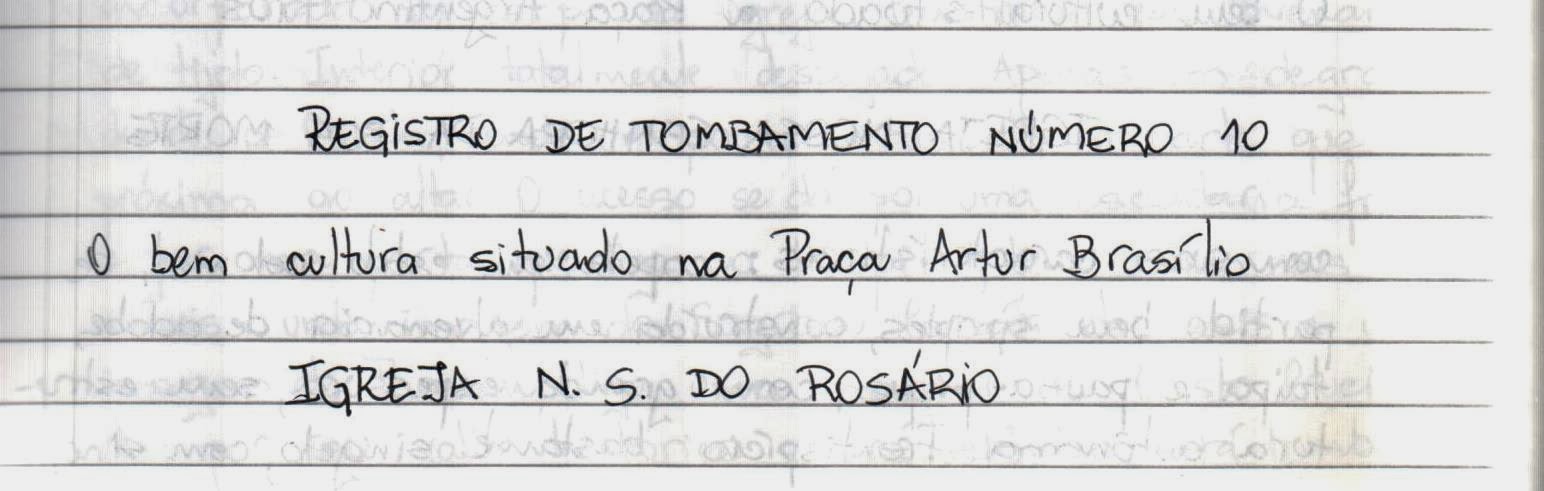 REGISTRO DE TOMBAMENTO NÚMERO 10
O bem cultura situado na Praça Artur Brasílio
IGREJA N. S. DO ROSÁRIO